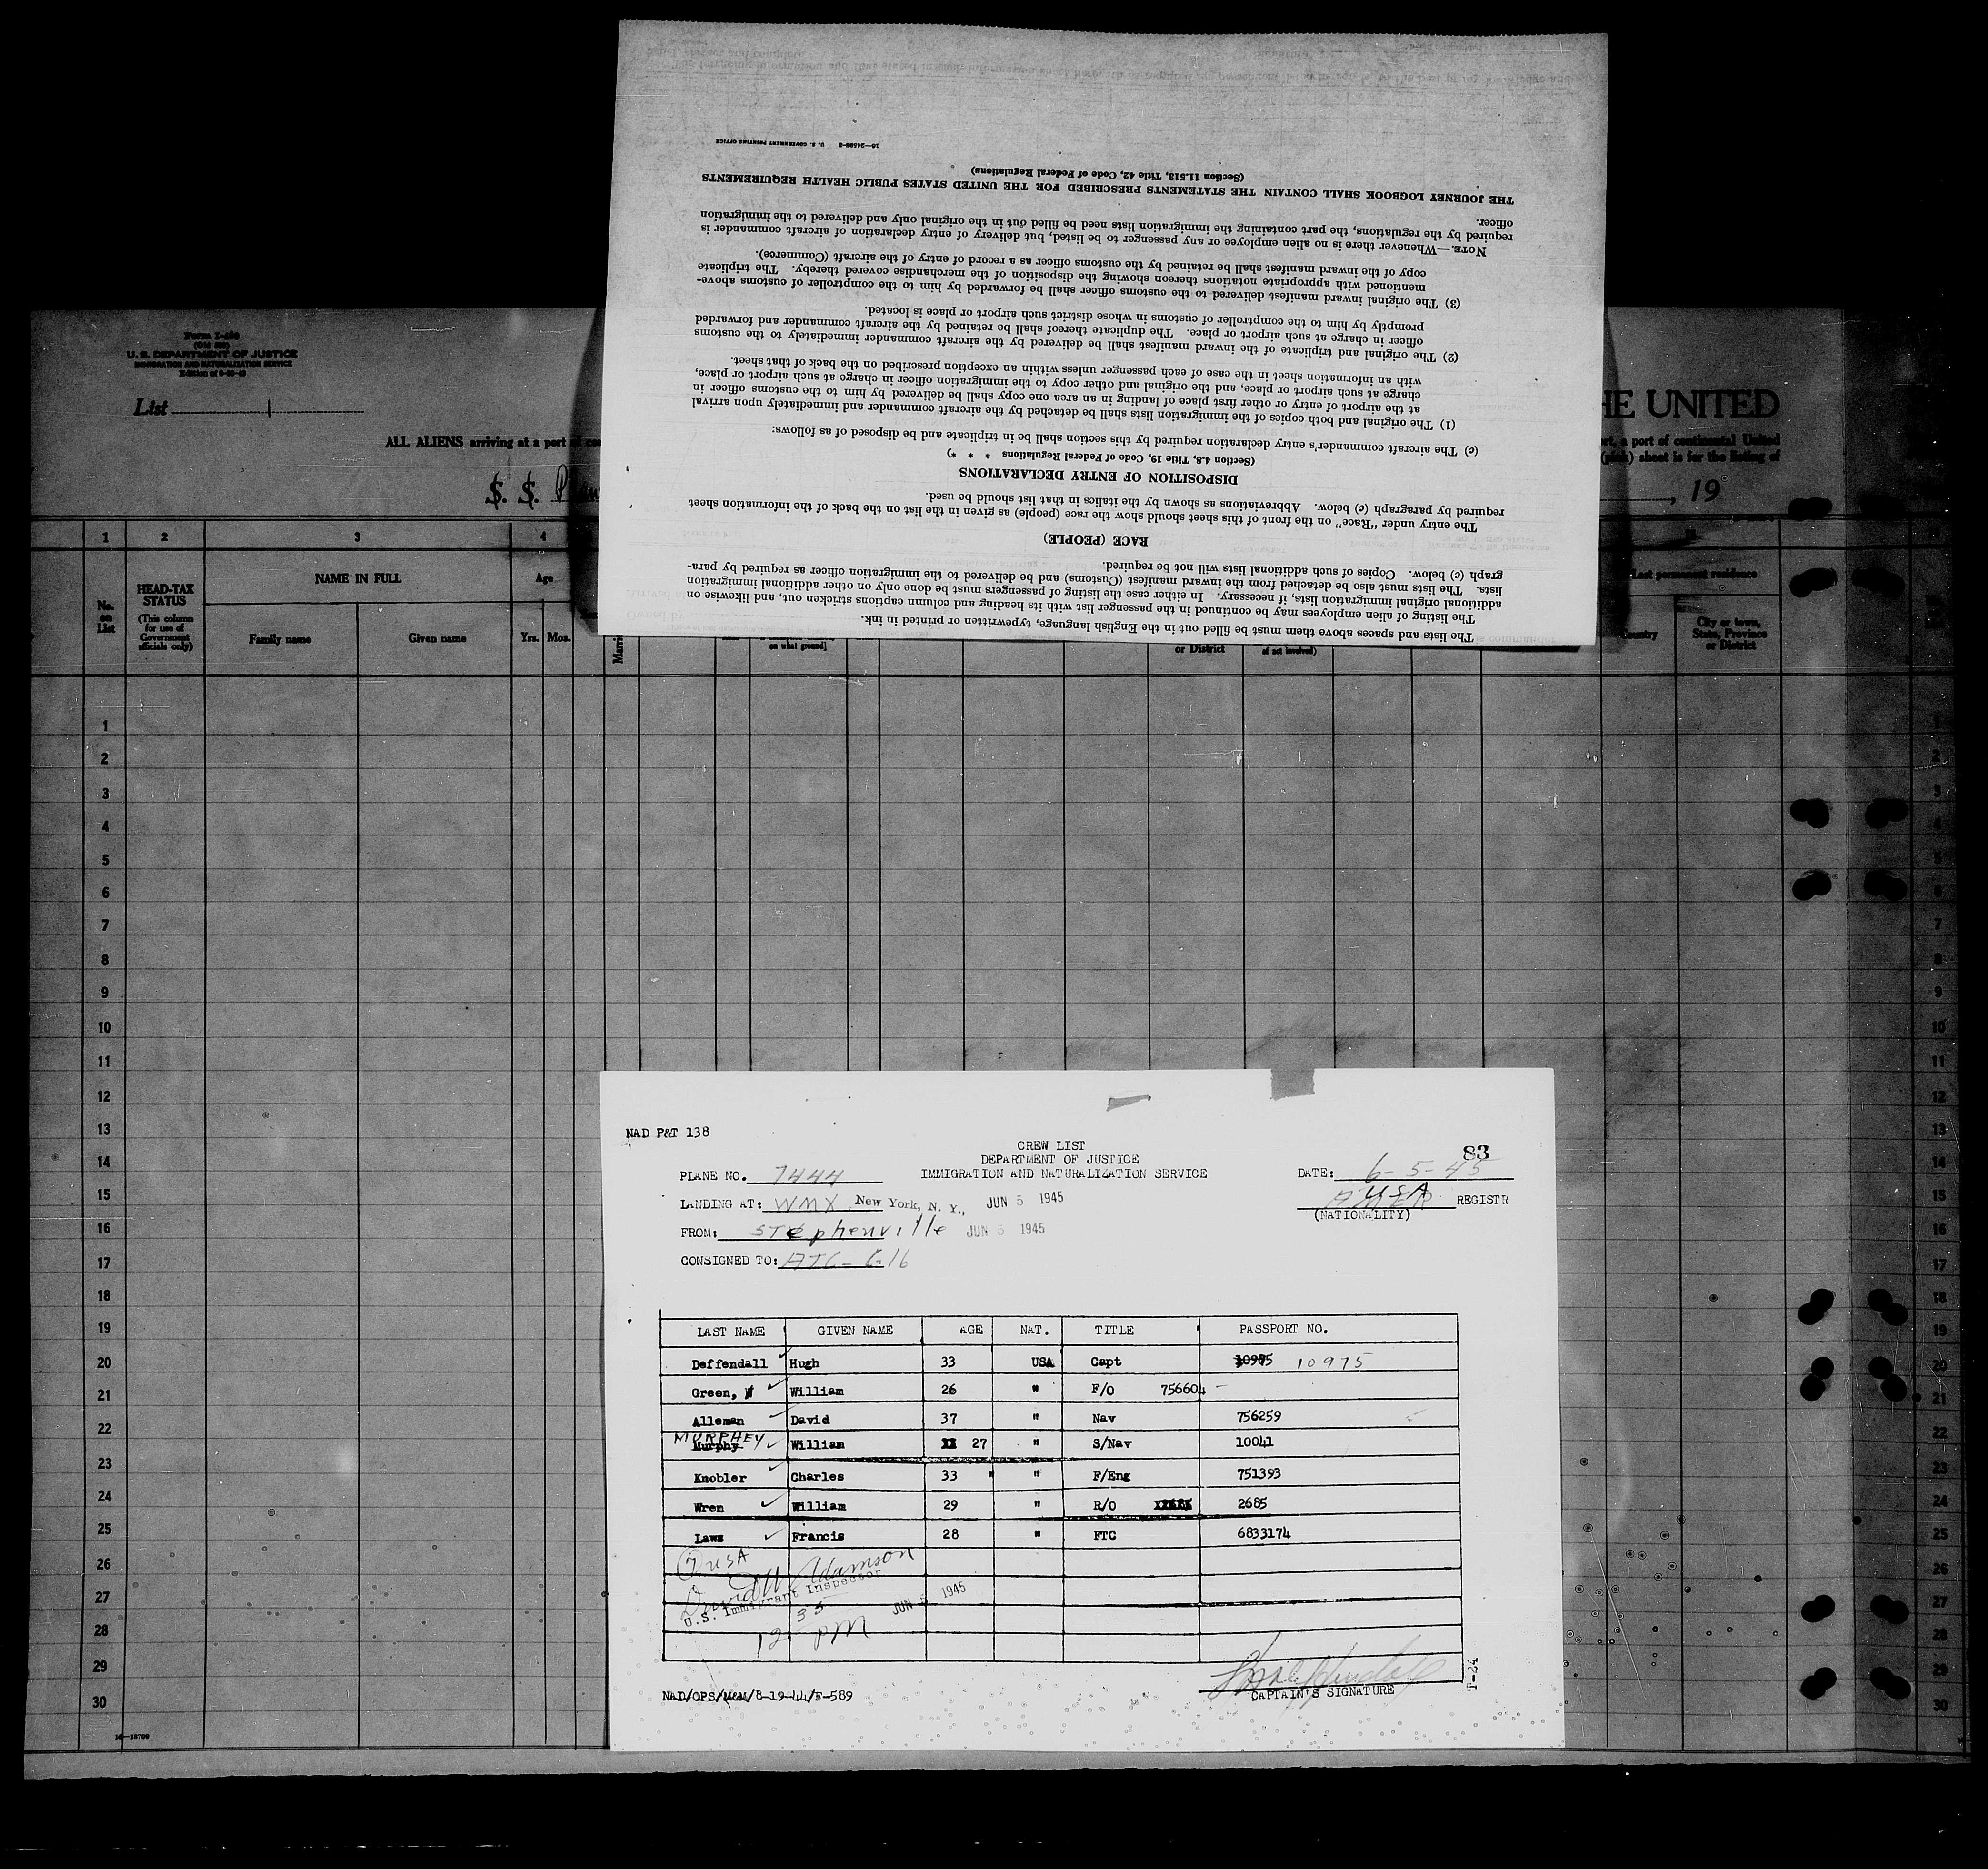 THE JOURNEY LOGBOOK SHALL CONTAIN THE STATEMENTS PRESCRIBED FOR THE UNITED STATES PUBLIC HEALTH REQUIREMENTS
(Section 11.513, Title 42, Code of Federal Regulations)
U. S. GOVERNMENT PRINTING OFFICE
The lists and spaces above them must be filled out in the English language, typewritten or printed in ink.
The listing of alien employees may be continued in the passenger list with its heading and column captions stricken out, and likewise on
additional original immigration lists, if necessary. In either case the listing of passengers must be done only on other additional immigration
lists. The lists must also be detached from the inward manifest (Customs) and be delivered to the immigration officer as required by para-
graph (c) below. Copies of such additional lists will not be required.
RACE (PEOPLE)
The entry under "Race" on the front of this sheet should show the race (people) as given in the list on the back of the information sheet
required by paragraph (c) below. Abbreviations as shown by the italics in that list should be used.
DISPOSITION OF ENTRY DECLARATIONS
(Section 4.8, Title 19, Code of Federal Regulations * * *)
(c) The aircraft commander's entry declaration required by this section shall be in triplicate and be disposed of as follows:
(1) The original and both copies of the immigration lists shall be detached by the aircraft commander and immediately upon arrival
at the airport of entry or other first place of landing in an area one copy shall be delivered by him to the customs officer in
charge at such airport or place, and the original and other copy to the immigration officer in charge at such airport or place,
with an information sheet in the case of each passenger unless within an exception prescribed on the back of that sheet.
(2) The original and triplicate of the inward manifest shall be delivered by the aircraft commander immediately to the customs
officer in charge at such airport or place. The duplicate thereof shall be retained by the aircraft commander and forwarded
promptly by him to the comptroller of customs in whose district such airport or place is located.
(3) The original inward manifest delivered to the customs officer shall be forwarded by him to the comptroller of customs above-
mentioned with appropriate notations thereon showing the disposition of the merchandise covered thereby. The triplicate
copy of the inward manifest shall be retained by the customs officer as a record of entry of the aircraft (Commerce).
NOTE.—Whenever there is no alien employee or any passenger to be listed, but delivery of entry declaration of aircraft commander is
required by the regulations, the part containing the immigration lists need be filled out in the original only and delivered to the immigration
officer.
U. S. DEPARTMENT OF JUSTICE
IMMIGRATION AND NATURALIZATION SERVICE
List 1
HE UNITED
ALL ALIENS arriving at a port
a port of continental United
sheet is for the listing of
S. S.
, 19
1 2 3 4
No. on List
HEAD-TAX STATUS
(This column for use of Government officials only)
NAME IN FULL
Family name
Given name
Age
Yrs. Mos.
on what ground]
or District
of act involved)
Last permanent residence
Country
City or town, State, Province or District
1
2
3
4
5
6
7
8
9
10
11
12
13
14
15
16
17
18
19
20
21
22
23
24
25
26
27
28
29
30
NAD P&T 138
CREW LIST
83
DEPARTMENT OF JUSTICE
PLANE NO. 7444 IMMIGRATION AND NATURALIZATION SERVICE DATE: 6-5-45
LANDING AT: WMX New York, N. Y., JUN 5 1945 USA REGISTR
(NATIONALITY)
FROM: Stephenville JUN 5 1945
CONSIGNED TO: ATC-616
LAST NAME GIVEN NAME AGE NAT. TITLE PASSPORT NO.
Deffendall Hugh 33 USA Capt 10975
Green, William 26 " F/O 756604
Alleman David 37 " Nav 756259
MURPHEY Murphy William 27 " S/Nav 10041
Knobler Charles 33 " " F/Eng 751393
Wren William 29 " R/O 2685
Laws Francis 28 " FTC 6833174
7 USA
David W Adamson
U.S. Immigrant Inspector
JUN 5 1945
12 35 PM
CAPTAIN'S SIGNATURE
NAD/OPS/M&M/8-19-44/F-589
T-24